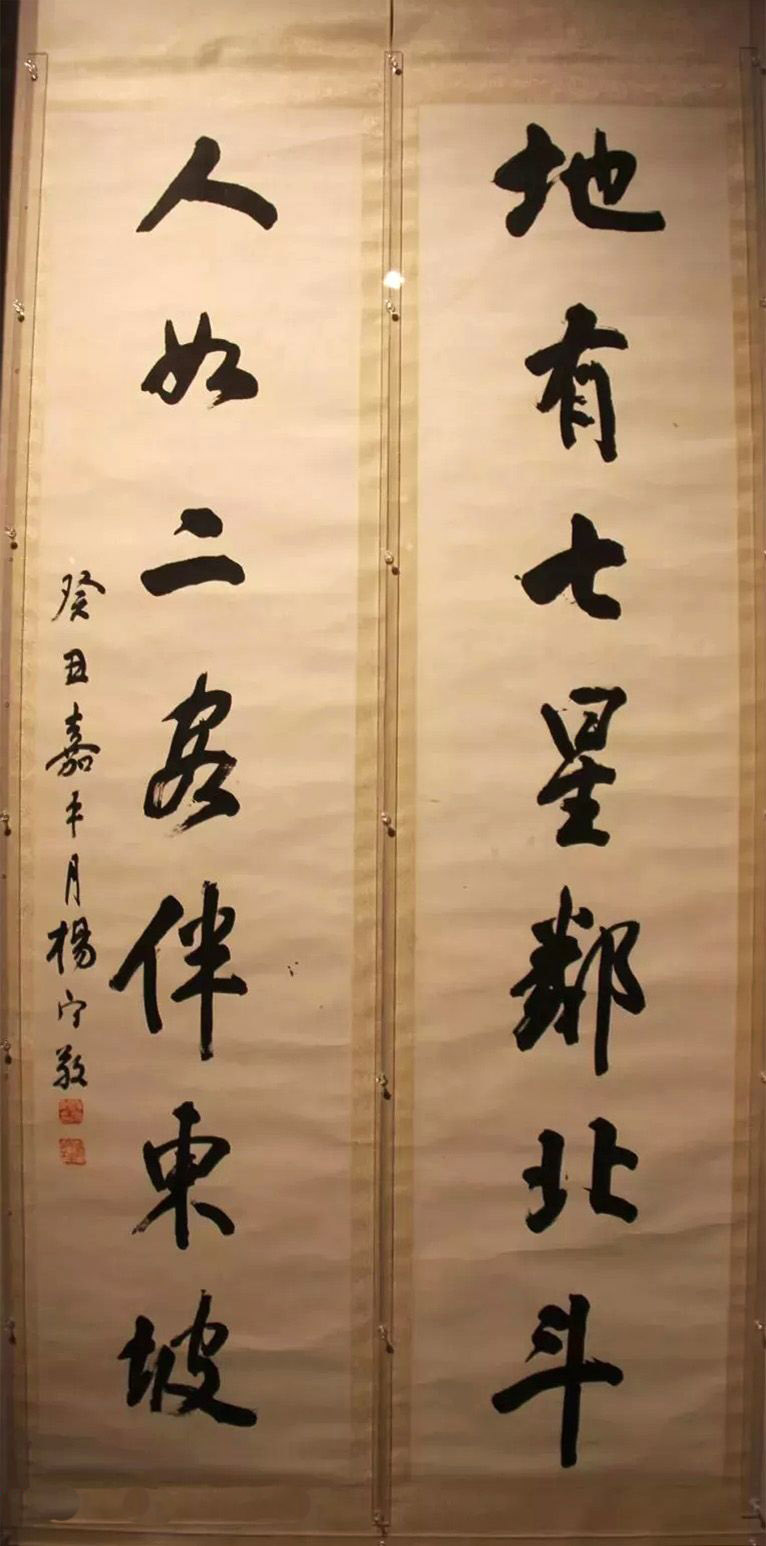 地有七星鄰北斗
人如二客伴東坡
癸丑嘉平月楊守敬